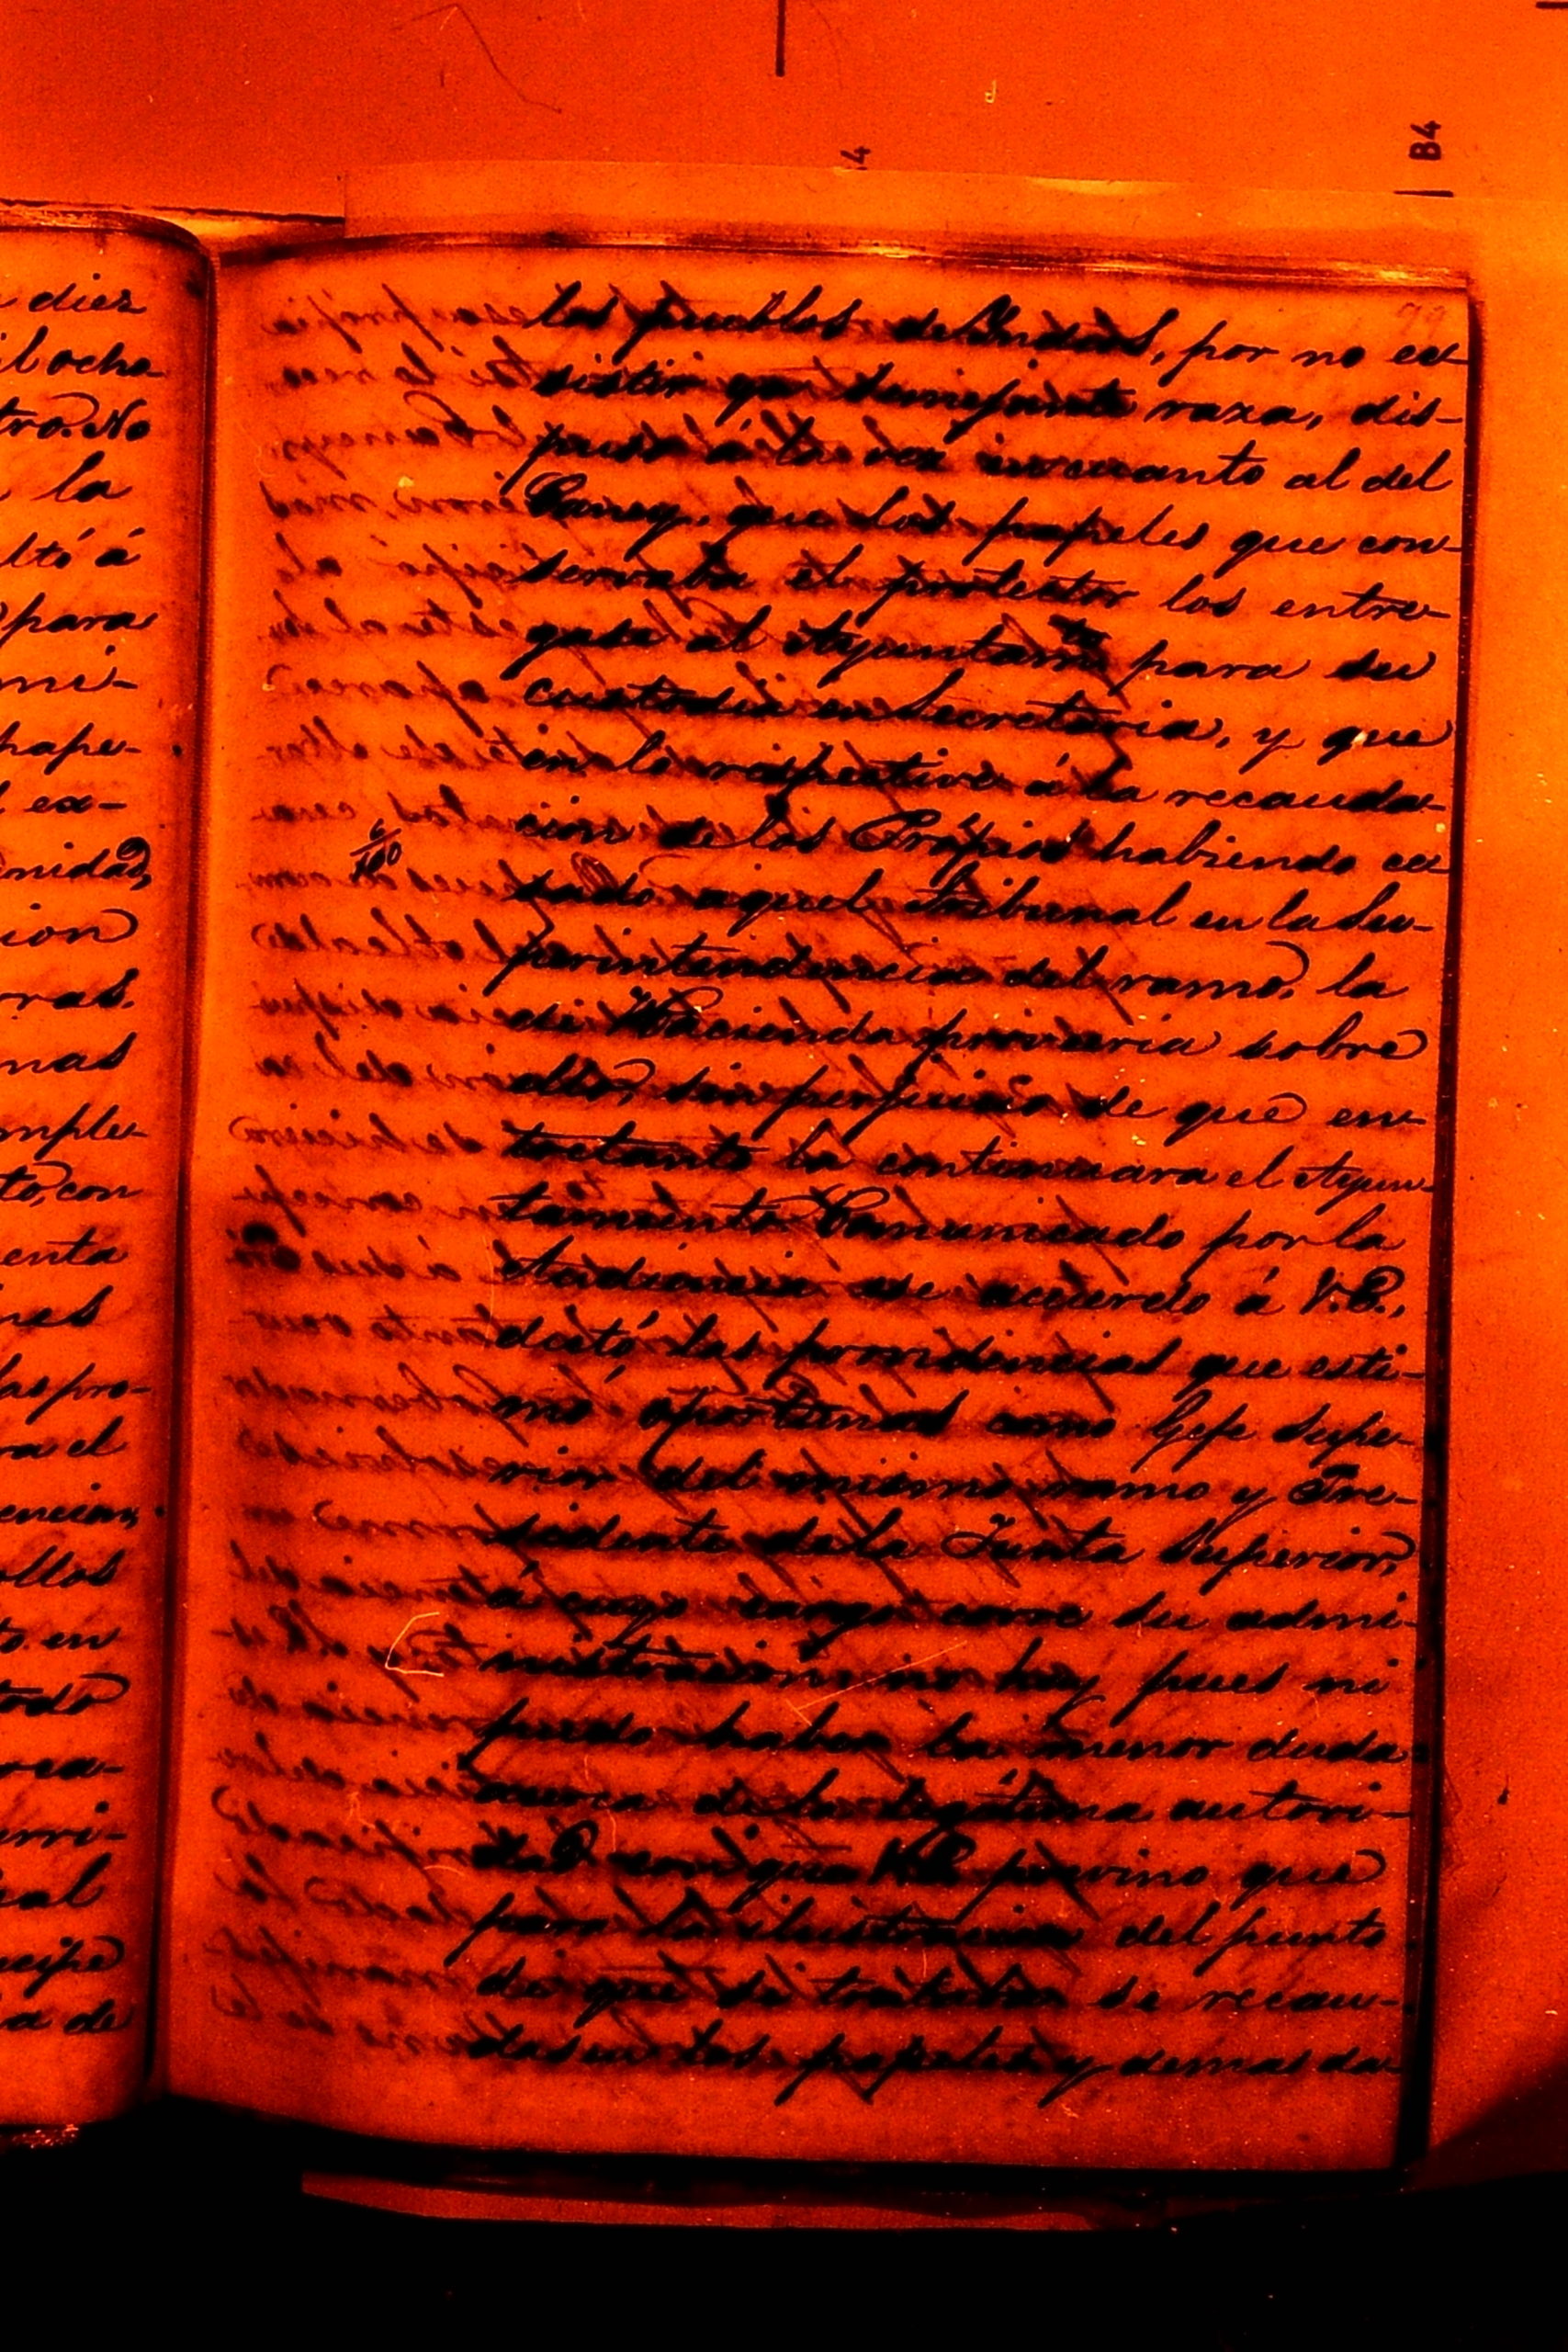 B4
99
los pueblos de Yndios, por no ec-
sistir ya semejante raza, dis-
puso á la vez en cuanto al del
Caney, que los papeles que con-
servaba el protector los entre-
gase al Ayuntam.to para su
custodia en Secretaria, y que
en lo respectivo á la recauda-
cion de los Propios habiendo ce-
sado aquel Tribunal en la Su-
perintendencia del ramo, la
de Hacienda proveeria sobre
ello, sin perjuicio de que en-
tretanto la continuara el Ayun-
tamiento Comunicado por la
Audiencia ese acuerdo á V.E.,
dictó las providencias que esti-
mó oportunas como Gefe Supe-
rior del mismo ramo y Pre-
sidente de la Junta Superior,
á cuyo cargo corre su admi-
nistracion: no hay pues ni
puede haber la menor duda
acerca de la legítima autori-
dad con que V.E. previno que
para la ilustracion del punto
de que se trataba se recau-
dasen los papeles y demas da-
6/100
diez
il ocho
tro. No
la
ltó á
para
mi-
pape-
ex-
nidad,
ion
ras.
mas
mple-
to, con
enta
nes
las pro-
ra el
encion,
ollos
to en
todo
rea-
rri-
al
cipe
a de